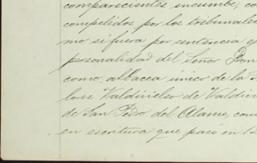 comparecientes incumbe, co
compelidos por los tribunales
mo si fuera por sentencia
personalidad del Señor Don
como albacea único de la
Valdivielso de Valdivi
de San Pedro del Alamo, con
en escritura que pasó en la